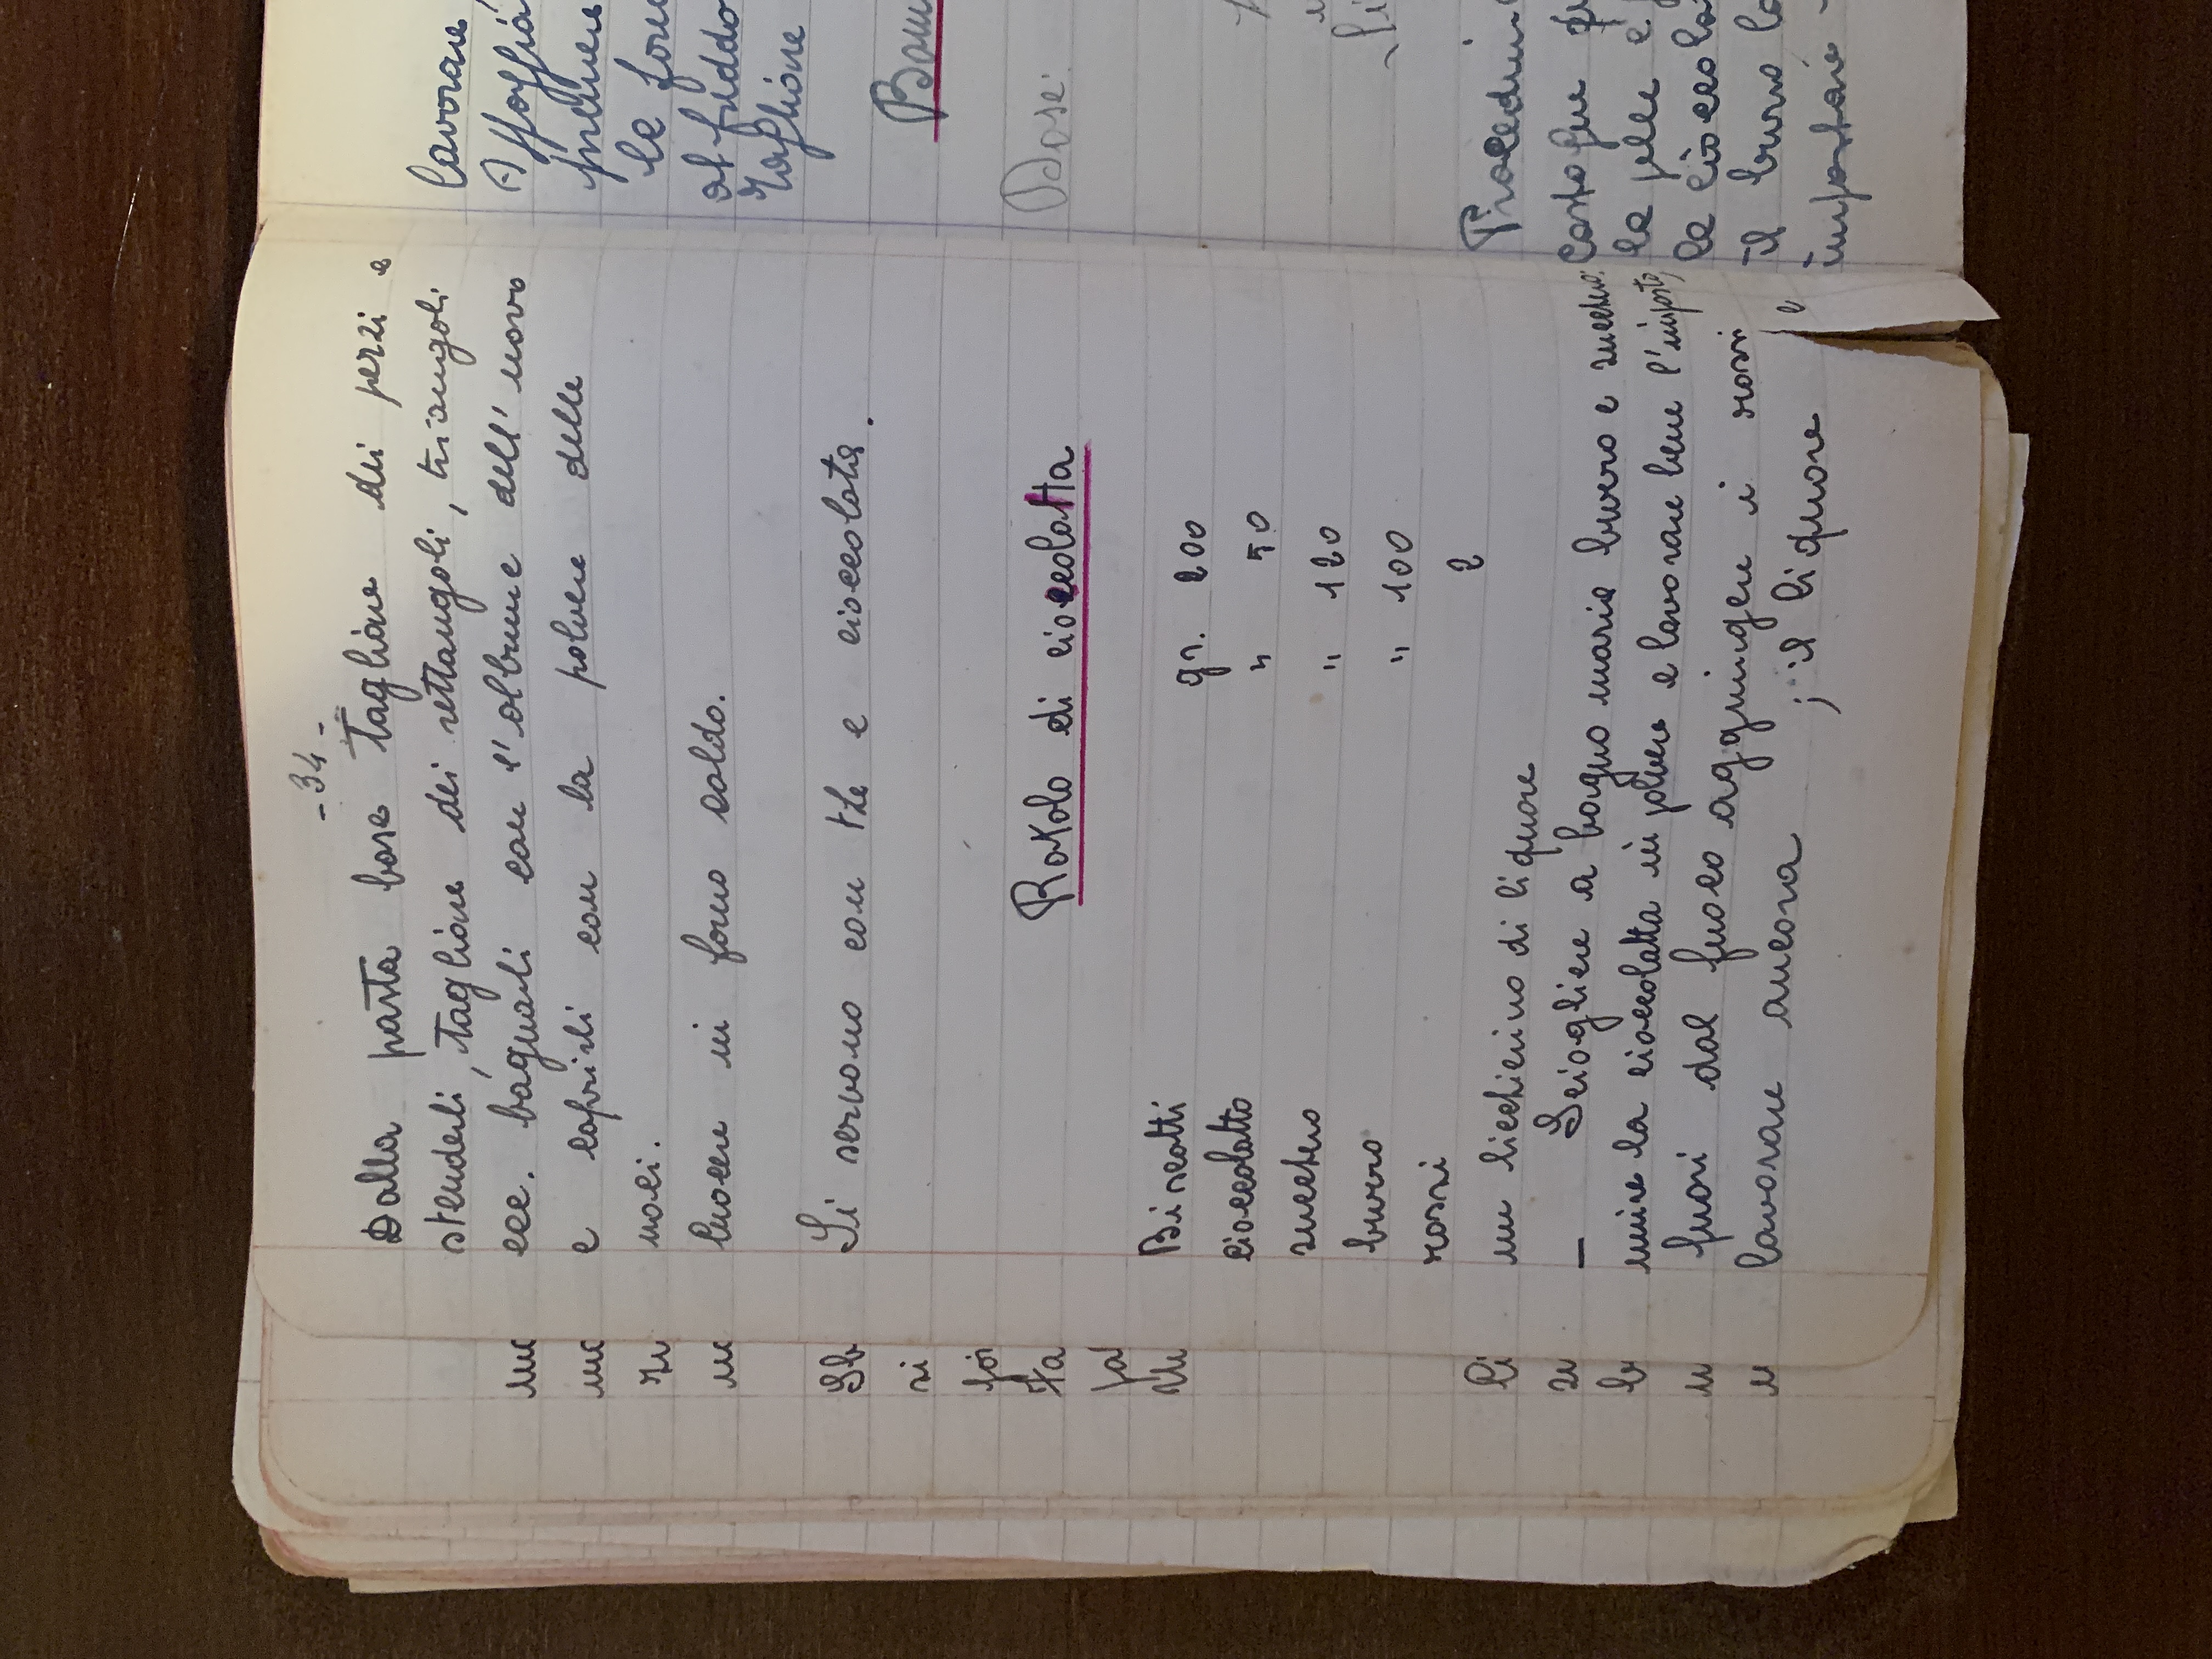 - 34 -
Dalla pasta base tagliare dei pezzi e
stenderli, tagliare dei rettangoli, triangoli
ecc. bagnarli con l'albume dell'uovo
e coprirli con la polvere delle
noci.
Cuocere in forno caldo.
Si servono con the e cioccolata.
Rotolo di cioccolatta
Biscotti gr. 200
cioccolatto " 50
zucchero " 120
burro " 100
rossi 2
un bicchierino di liquore
— Sciogliere a bagno maria burro e zucchero:
unire la cioccolatta in polvere e lavorare bene l'impasto,
fuori dal fuoco aggiungere i rossi e
lavorare ancora ; il liquore
lavorare,
Appoggia
premere
le
al freddo
Tagliare
Dose:
Procedim
castagne
le pelle e
le cioccola
il burro
impastare